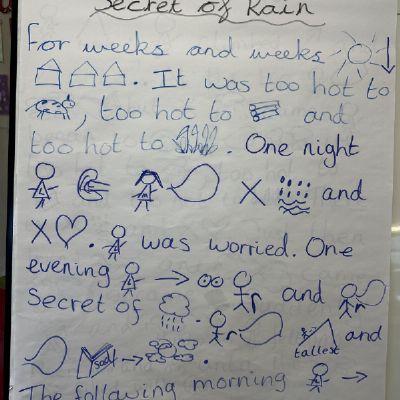 Secret of Rain
For weeks and weeks
. It was too hot to
, too hot to and
too hot to . One night
X and
X . was worried. One
evening → and
Secret of .
tallest and
sad → .
The following morning →